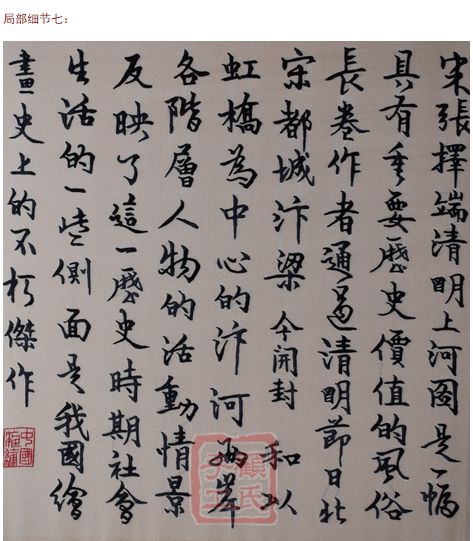 局部细节七：
宋張擇端清明上河圖是一幅
具有重要歷史價值的風俗
長卷作者通過清明節日北
宋都城汴梁 今開封 和以
虹橋為中心的汴河兩岸
各階層人物的活動情景
反映了這一歷史時期社會
生活的一些側面是我國繪
畫史上的不朽傑作
顧氏